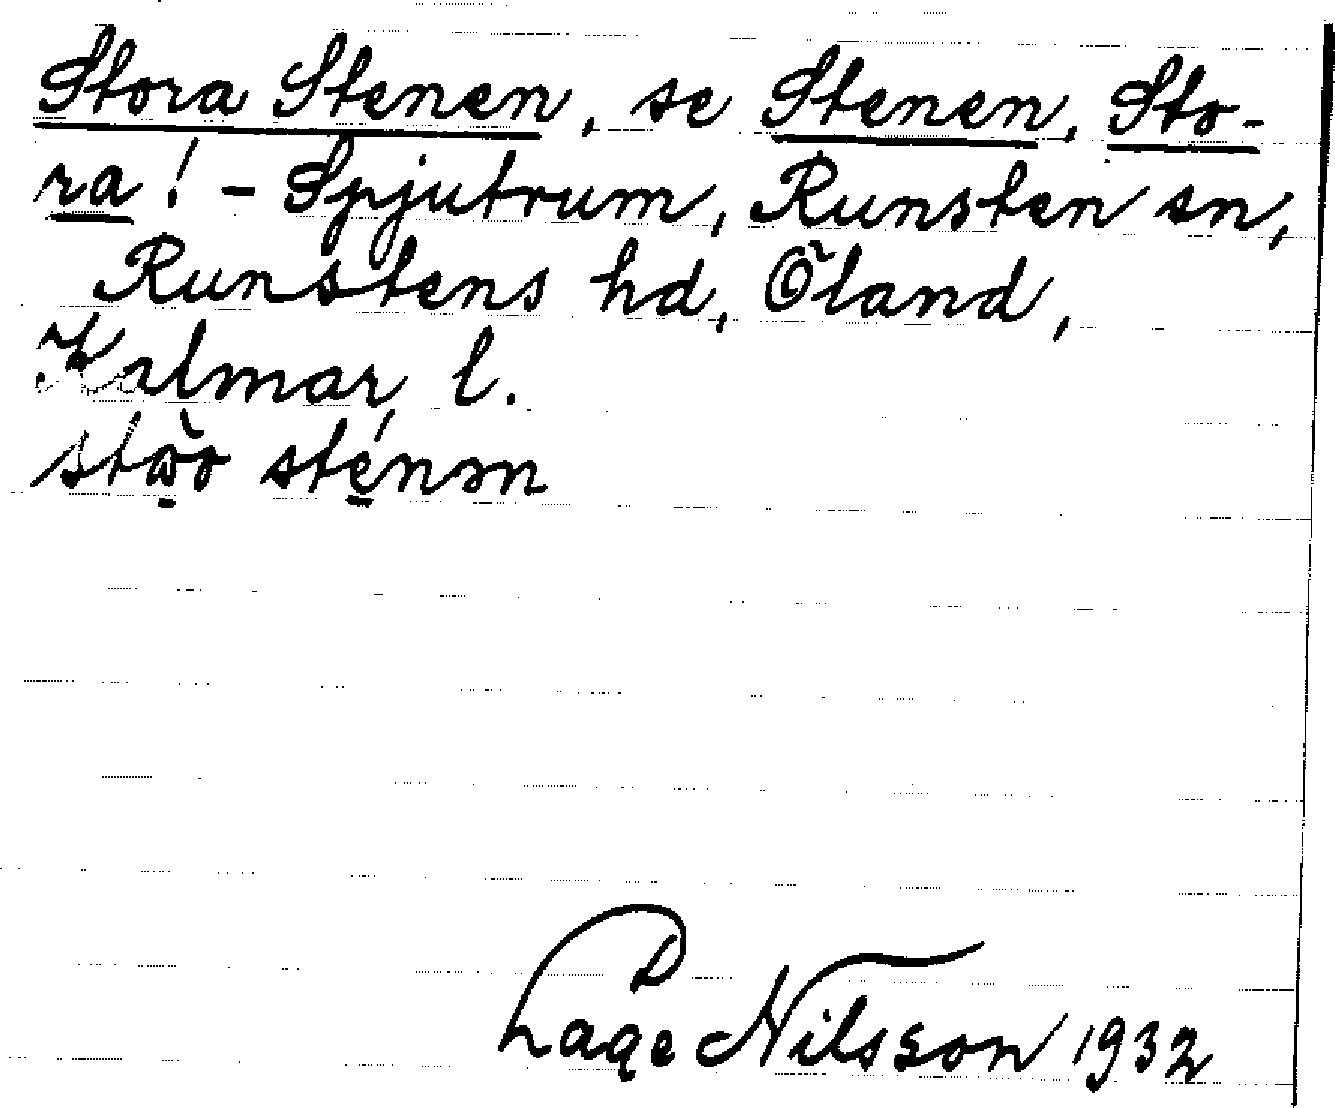 Stora Stenen, se Stenen, Sto-
ra! - Spjutrum, Runsten sn,
Runstens hd, Öland,
Kalmar l.
stenən
Lage Nilsson 1932